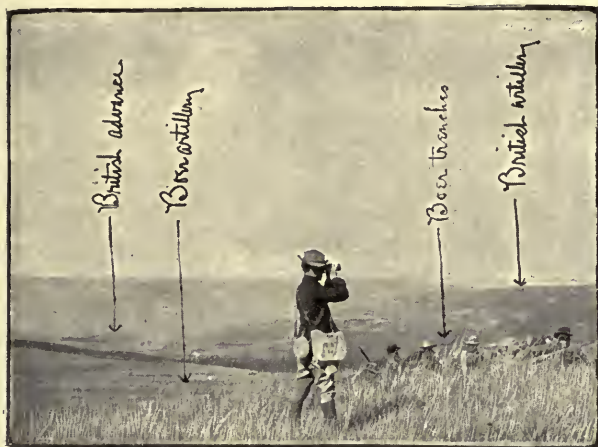 British advance
Boer artillery
Boer trenches
British artillery